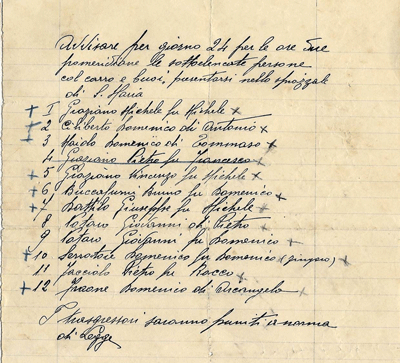 Avvisare per giorno 24 per le ore due
pomeridiane le sottoelencate persone
col carro e buoi, presentarsi nello spiazzale
di S. Maria
+ 1 Graziano Michele fu Michele x
+ 2 Ciliberto Domenico di Antonio x
+ 3 Maiolo Domenico di Tommaso x
4 Graziano Pietro fu Francesco x
+ 5 Graziano Vincenzo fu Michele x
+ 6 Buccafurni Bruno fu Domenico x
+ 7 Giuseppe fu Michele x
8 Potami Giovanni di Pietro x
9 Giovanni fu Domenico x
+ 10 Servatore Domenico fu Domenico x
11 Pietro fu Rocco x
+ 12 Domenico di Arcangelo x
I trasgressori saranno puniti a norma
di Legge